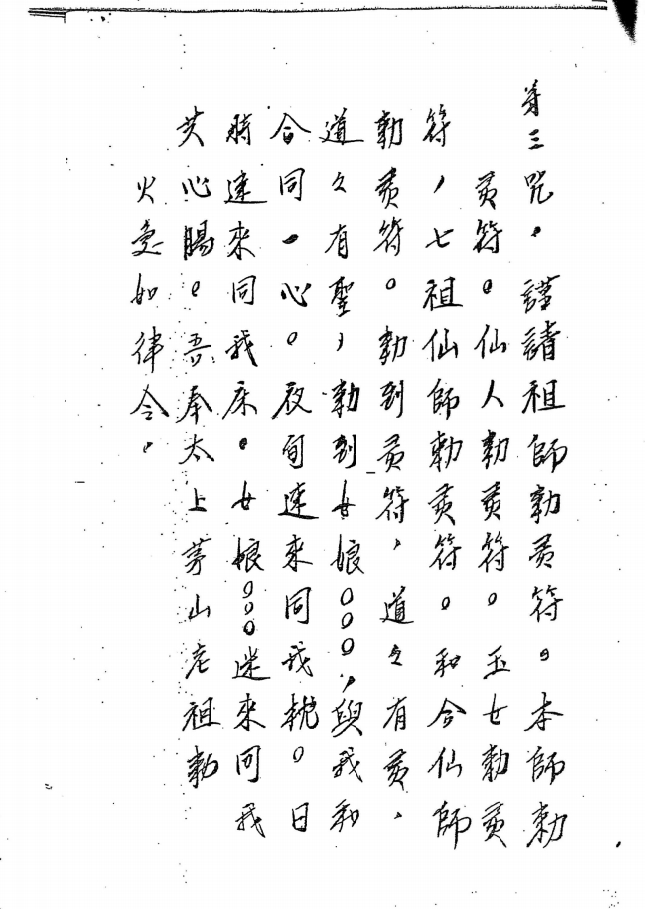 第三咒。謹請祖師勅灵符。本師勅
灵符。仙人勅灵符。玉女勅灵
符，七祖仙師勅灵符。和合仙師
勅灵符。勅到灵符，道々有灵，
道々有聖，勅到女娘○○○，與我和
合同一心。夜间速来同我枕。日
時速来同我床。女娘○○○迷来同我
共心腸。吾奉太上茅山老祖勅
火急如律令。